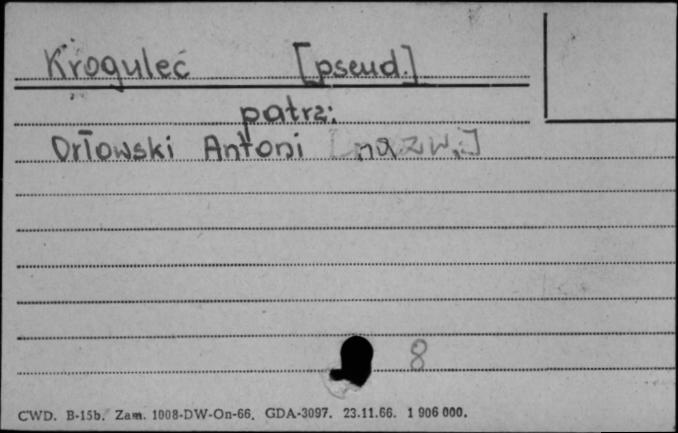 Kroguleć [pseud.]
patrz:
Orłowski Antoni [nazw.]
8
CWD. B-15b. Zam. 1008-DW-On-66. GDA-3097. 23.11.66. 1 906 000.